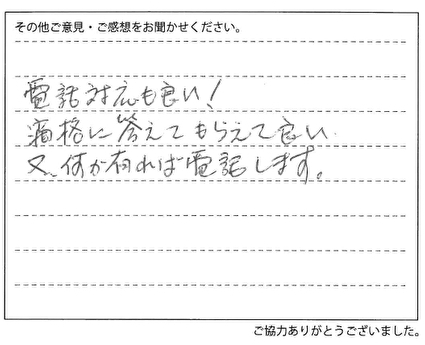 その他ご意見・ご感想をお聞かせください。
電話対応も良い!
適格に答えてもらえて良い
又、何か有れば電話します。
ご協力ありがとうございました。